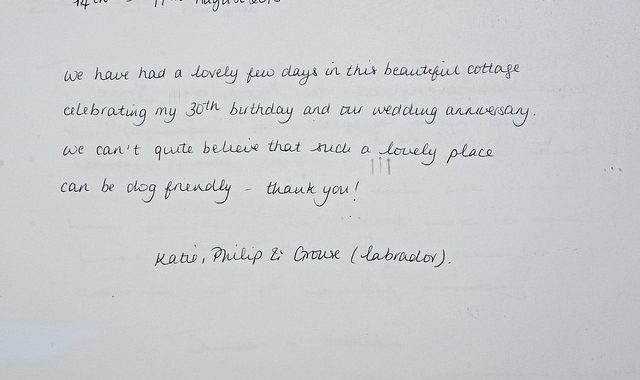 14th - 17th August
We have had a lovely few days in this beautiful cottage
celebrating my 30th birthday and our wedding anniversary.
We can't quite believe that such a lovely place
can be dog friendly - thank you!
Katie, Philip & Grouse (labrador).